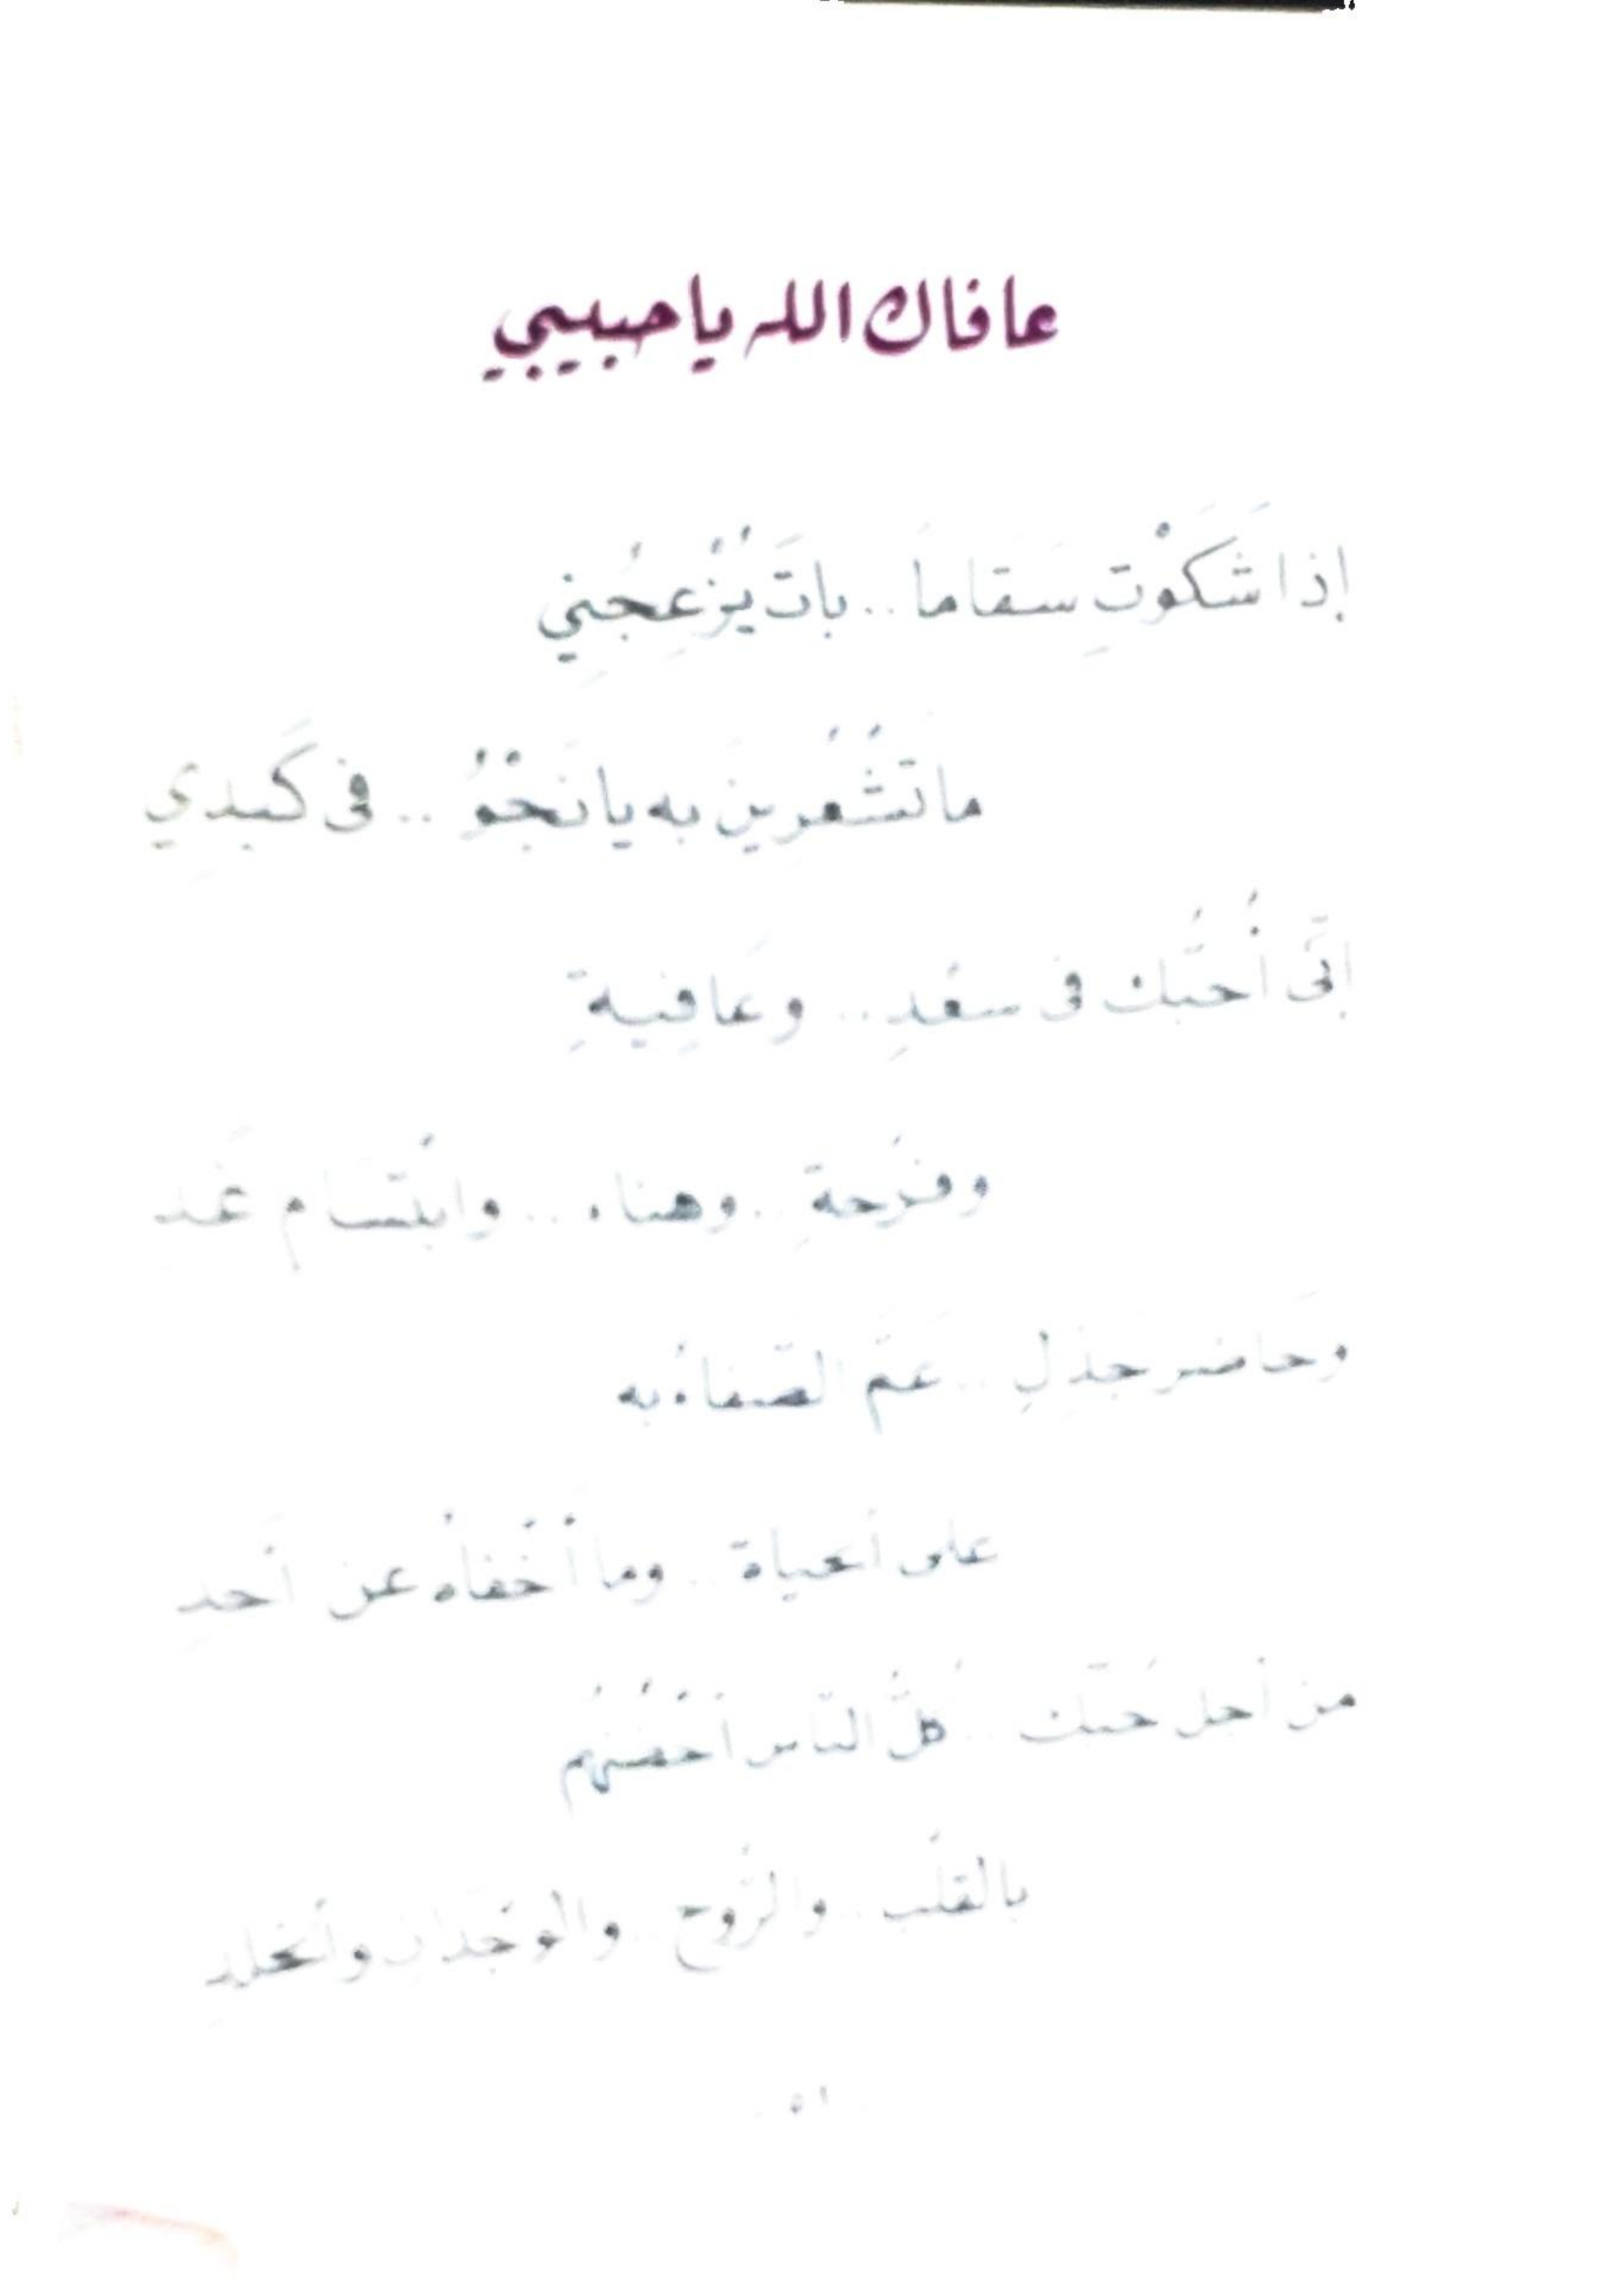 عافاك الله يا حبيبي
إذا شَكَوْتِ سَقاماً .. باتَ يُزْعِجُني
ما تَشْعُرين به يا نَجْوُ .. في كَبِدِي
إنّى أُحبُّك في سعْدٍ .. وعَافِيةٍ
وفرْحةٍ .. وهناء .. وابْتسَام غَد
وحَاضر جَذِلٍ .. عَمَّ الصّفاءُ به
على الحياة .. وما أخْفاهُ عن أحَدِ
من أجل حُبّك .. كلُّ النّاس أحْضُنُهُم
بالقلْب .. والرُّوح .. والوجْدَان والخلدِ
٥١